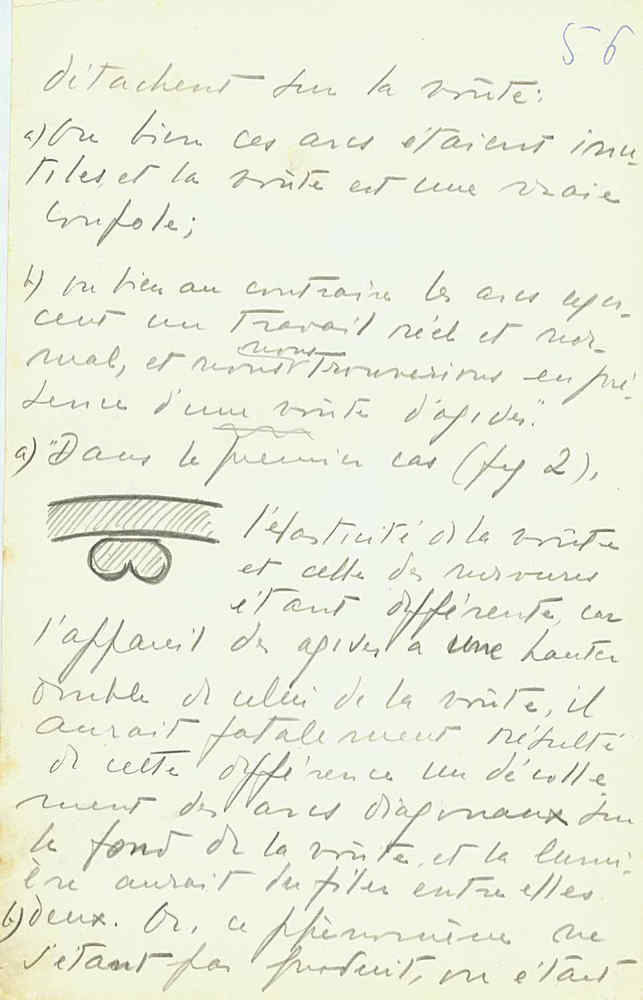 56
détachent sur la voûte:
a) Ou bien ces arcs étaient inu-
tiles, et la voûte est une vraie
coupole;
b) ou bien au contraire les arcs exer-
cent un travail réel et nor-
mal, et nous nous trouverions en pré-
sence d'une voûte d'ogives".
a) "Dans le premier cas (fig 2),
l'élasticité de la voûte
et celle des nervures
étant différente, car
l'appareil des ogives a une hauteur
double de celui de la voûte, il
aurait fatalement résulté
de cette différence un décolle
ment des arcs diagonaux sur
le fond de la voûte, et la lumi-
ère aurait du filer entre elles
b) deux. Or, ce phénomène ne
s'étant pas produit, on était